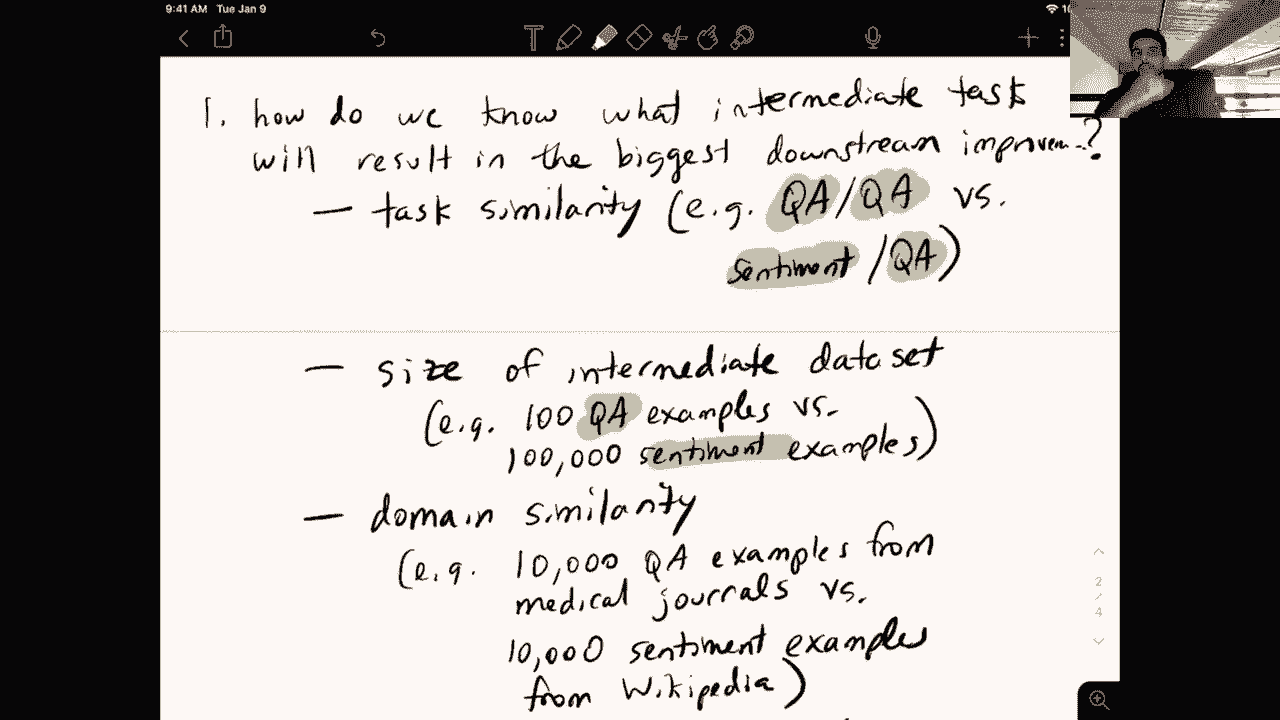 9:41 AM Tue Jan 9
1. how do we know what intermediate task
will result in the biggest downstream improvem..?
— task similarity (e.g. QA/QA vs.
sentiment/QA)
— size of intermediate dataset
(e.g. 100 QA examples vs.
100,000 sentiment examples)
— domain similarity
(e.g. 10,000 QA examples from
medical journals vs.
10,000 sentiment examples
from Wikipedia)
2
/
4